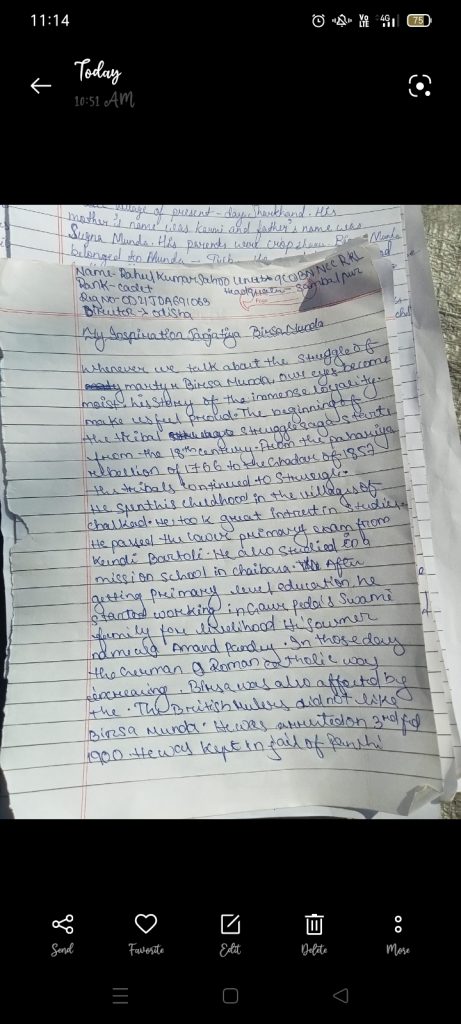 11:14
Vo LTE 4G 75
Today
10:51 AM
village of present-day Jharkhand. His
mother's name was Karmi and father's name was
Sugna Munda. His parents were crop sharer. Munda
belonged to Munda
Name- Rahul Kumar Sahoo Unit-9(O)BN NCC RKL
Rank- cadet Headquarter- Sambalpur
Director- odisha
My Inspiration Janjatiya Birsa Munda
Whenever we talk about the struggle of
martyr Birsa Munda, our eyes become
moist. his story of the immense
make us feel proud. The beginning of
the tribal struggle saga starts
from the 18th century. From the pahariya
rebellion of 1766 to the Ghadar of 1857
the tribals continued to struggle.
He spent his childhood in the villages of
chalkad. He took great intrest in studies.
He passed the lower primary exam from
Kundi Bartoli. He also studied in a
mission school in chaibasa. After
getting primary level education he
started working in Gaur Peda's Swami
family for livelihood
Anand Panday. In those day
the German & Roman catholic way
increasing. Birsa was also affected by
the. The British rulers did not like
Birsa Munda. He was arrested on 3rd
1900. He was kept in jail of Ranchi
Send
Favorite
Edit
Delete
More